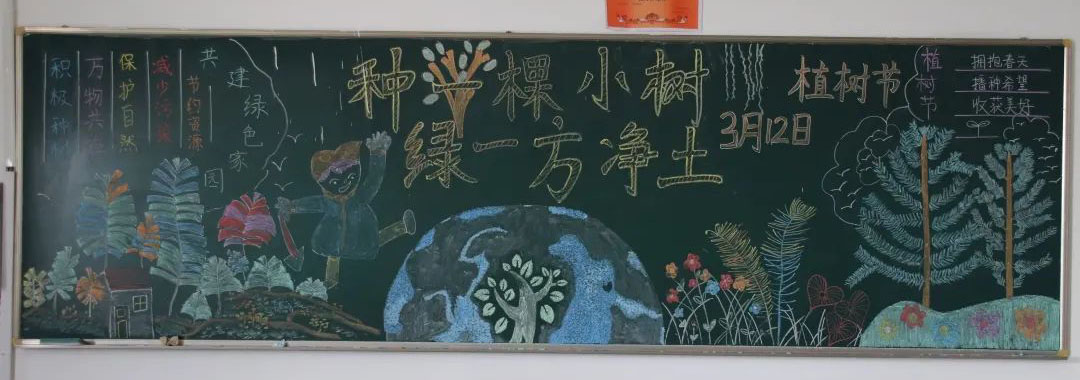 积极种树
万物共生
保护自然
减少污染
节约资源
共建绿色家园
种一棵小树
绿一方净土
3月12日
植树节
植树节
拥抱春天
播种希望
收获美好